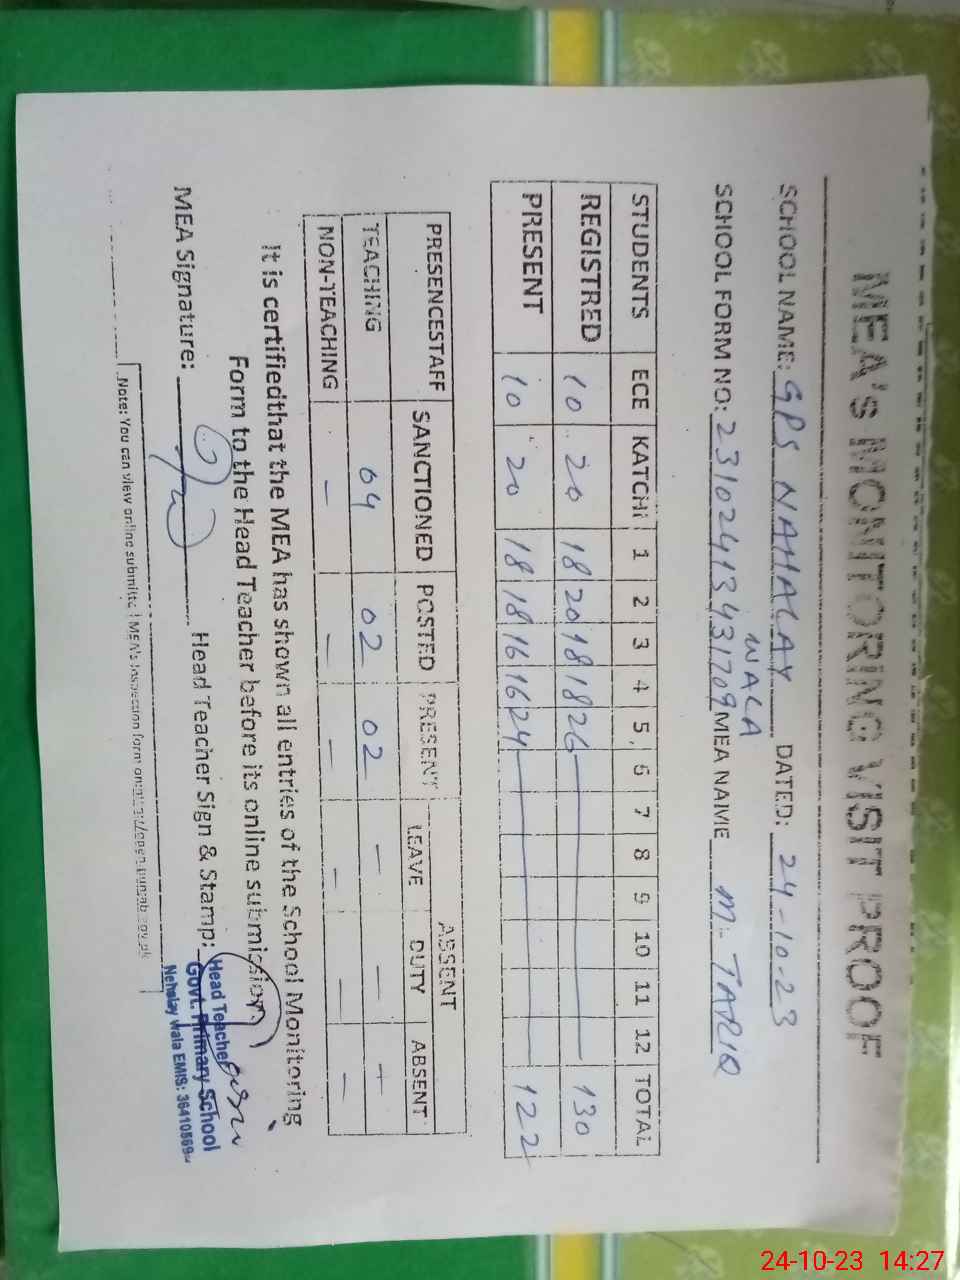 MEA's MONITORING VISIT PROOF
SCHOOL NAME: GPS NAHALAY WALA DATED: 24-10-23
SCHOOL FORM NO: 23102413431709 MEA NAME M. TARIQ
STUDENTS ECE KATCHI 1 2 3 4 5 6 7 8 9 10 11 12 TOTAL
REGISTRED 10 20 18 20 18 18 26 — 130
PRESENT 10 20 18 18 16 16 24 — 122
ABSENT
PRESENCESTAFF SANCTIONED POSTED PRESENT LEAVE DUTY ABSENT
TEACHING 04 02 02 — — —
NON-TEACHING — — — — — —
It is certifiedthat the MEA has shown all entries of the School Monitoring
Form to the Head Teacher before its online submission.
MEA Signature: Head Teacher Sign & Stamp:
Head Teacher
Govt. Primary School
Nehalay Wala EMIS: 36410569
Note: You can view online submitted MEA's Inspection form on
24-10-23 14:27